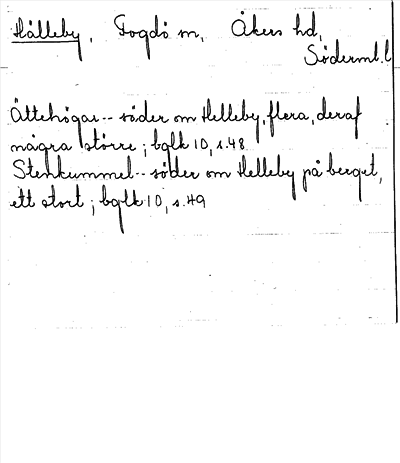 Hälleby, Fogdö sn, Åkers hd,
Söderml. l
Ättehögar -- söder om Helleby, flera, deraf
några större; bglk 10, s. 48
Stenkummel -- söder om Helleby på berget,
ett stort; bglk 10, s. 49